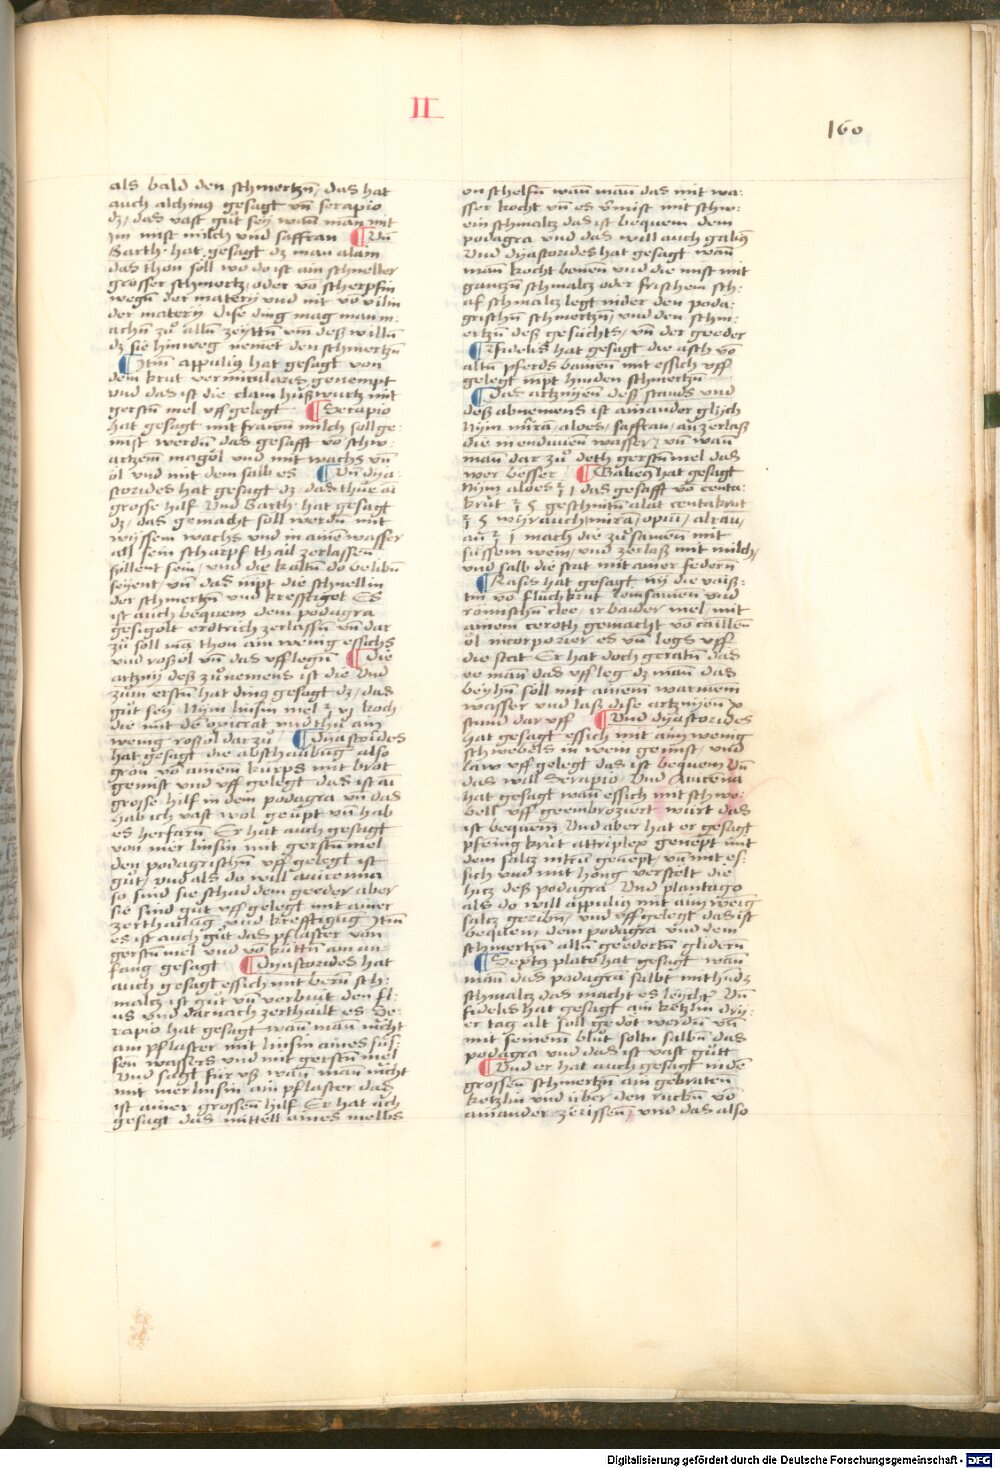 II
160
als bald den schmertzn̄, das hat
auch alchinꝰ gesagt vn̄ serapio
dz, das vast gůt sey wan̄ man mit
im mist milch vnd saffran ¶ Vn̄
Barth· hat gesagt dz man alain
das thon söll wo do ist ain schneller
grosser schmertz, oder vō scherpfin
wegn̄ der matery vnd nit vō vilin
der matery dise ding mag man m
achn̄ zů alln̄ zeyttn̄ vm deß willn̄
dz sie hinweg nemet den schmertzn̄
¶ Itm̄ appuliꝰ hat gesagt von
dem krut vermicularis genempt
vnd das ist die clain hußwurtz mit
gerstn̄ mel vff gelegt ¶ Serapio
hat gesagt mit frawn̄ milch soll ge
mist werdn̄ das gesafft vō schw
artzem magöl vnd mit wachs vn̄
öl vnd mit dem salb es ¶ Vn̄ dya
scorides hat gesagt dz, das thůe ai
grosse hilf Vnd Barth· hat gesagt
dz, das gemacht soll werdn̄ mit
wyssem wachs vnd in ainē wasser
all sein scharpf thail zerlassen
syllent sein, vnd die kaltn̄ do belibn̄
seyent, vn̄ das nipt die schnellin
der schmertzn̄ vnd krefftiget Es
ist auch bequem dem podagra
gesigolt erdtrich zerlassn̄ vn̄ dar
zů soll mā thon ain wenig essichs
vnd roßöl vn̄ das vff legn̄ ¶ Die
artzny deß zůnemens ist die, Vnd
zům erstn̄ hat ding gesagt dz, das
gůt sey Nym linsin mel ℥ vj koch
die mit dē opicrat vnd thů ain
wenig roßöl dar zů ¶ dyascorides
hat gesagt die abschabung also
grōn vō ainem kürps mit brot
gemist vnd vff gelegt das ist ai
grosse hilf in dem podagra vn̄ das
hab ich vast wol geüpt vn̄ hab
es herfarn̄ Er hat auch gesagt
von mer linsin mit gerstn̄ mel
den podagrischn̄ vff gelegt ist
gůt, vnd als do will auicenna
so sind sie schad dem geeder aber
sie sind gůt vff gelegt mit ainer
zerthailūg vnd krefftigūg Itm̄
es ist auch gůt das pflaster von
gerstn̄ mel vnd vō küttn̄ am an
fang gesagt ¶ Dyascorides hat
auch gesagt essich mit bern̄ sch
maltz ist gůt vn̄ verbiut den fl
us vnd darnach zerthailt es Se
rapio hat gesagt wan̄ man̄ mücht
ain pflaster mit linsin aines süs
sen wassers vnd mit gerstn̄ mel
Vnd sagt für vß wan̄ man̄ mücht
mit merlinsin ain pflaster das
ist ainer grossen̄ hilf Er hat ach
gesagt das mittell aines melbs
on schelfn̄ wan̄ man̄ das mit wa
sser kocht vn̄ es v̄mist mit schw
ein schmaltz das ist bequem dem
podagra vnd das will auch galiēꝰ
Vnd dyascorides hat gesagt wan̄
man̄ kocht bonen vnd die mist mit
gantzn̄ schmaltz oder frischem sch
af schmaltz legt nider den poda
grischn̄ schmertzn̄, vnd den schm
ertzn̄ deß gesüchts, vn̄ der geeder
¶ Fidelis hat gesagt die asch vō
altn̄ pferds bainen̄ mit essich vff
gelegt nipt hinden schmertzn̄
¶ Das artznyen̄ deß stands vnd
deß abnemens ist ainander glych
Nym mirrā, aloes, saffran, an̄ zerlaß
die in endiuien wasser, vn̄ wan̄
man̄ dar zů deth gerstn̄ mel das
wer besser ¶ Galienꝰ hat gesagt
Nym aloes ℥ j das gesafft vō centa
krut ℥ 5 geschnittn̄ alat centakrut
℥ 5 wyrauch mirrā, opiū, alrau,
an̄ ℥ j mach die zůsamen̄ mit
süssem wein, vnd zerlaß mit milch,
vnd salb die stat mit ainer federn̄
¶ Rases hat gesagt nȳ die vaiß
tin vō flüchkrut leinsamen vnd
römischn̄ clee, ir baider mel mit
ainem ceroth gemacht vō caillen̄
öl incorporier es vn̄ legs vff
die stat Er hat doch geratn̄ das
ee man̄ das vff leg dz man̄ das
beyhn̄ söll mit ainem warmem
wasser vnd laß dise artznyen x
stund dar vff ¶ Vnd dyascorides
hat gesagt essich mit ainˀ wenig
schwebels in wein gemist, vnd
law vff gelegt das ist bequem Vn̄
das will Serapio, Vnd Auicena
hat gesagt wan̄ essich mit schwe
bell vff geembroziert würt das
ist bequem̄ Vnd aber hat er gesagt
pfennig krut attriplex genēpt mit
dem saltz nitrū genēpt vn̄ mit es
sich vnd mit höng verstelt die
hitz deß podagra Vnd plantago
als do will appuliꝰ mit ainˀ wēig
saltz geribn̄, vnd vff gelegt das ist
bequem dem podagra vnd dem
schmertzn̄ altn̄ geedertn̄ glidern
¶ Septꝰ plato hat gesagt wan̄
man̄ das podagrā salbt mit hūdz
schmaltz das macht es leycht Vn̄
fidelis hat gesagt ain ketzlin dry
er tag alt soll gedöt werdn̄ vn̄
mit seinem blut soltu salbn̄ das
podagra vnd das ist vast gütt
¶ Vnd er hat auch gesagt in dē
grossen̄ schmertzn̄ ain gebraten
ketzlin vnd über den ruckn̄ vō
ainander zerissen̄, vnd das also
Digitalisierung gefördert durch die Deutsche Forschungsgemeinschaft - DFG